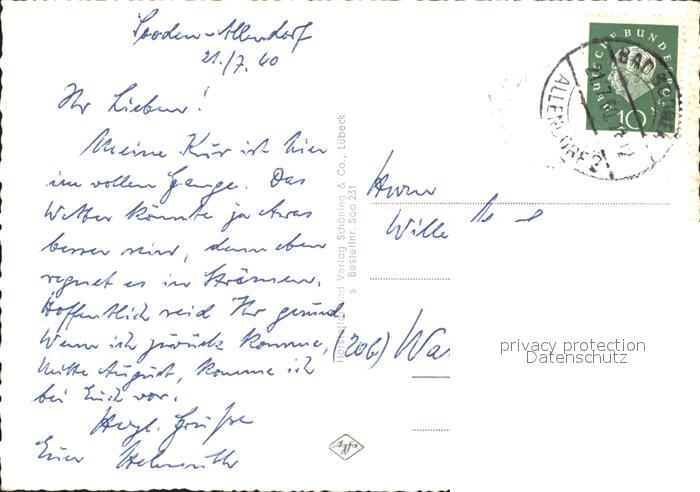 Sooden-Allendorf
21./7. 60
Ihr Lieben!
Meine Kur ist hier
im vollen Gange. Das
Wetter könnte ja etwas
besser sein, denn eben
regnet es in Strömen.
Hoffentlich seid Ihr gesund
Wenn ich zurück komme,
Mitte August, komme ich
bei Euch vor.
Herzl. Grüße
Euer Helmuth
Hersteller und Verlag Schöning & Co., Lübeck
s Bestellnr. Soo 231
Agfa
DEUTSCHE BUNDESPOST
10
BAD
ALLENDORF 2
21.7.60
Herrn
Wille
(20b) Wa
privacy protection
Datenschutz